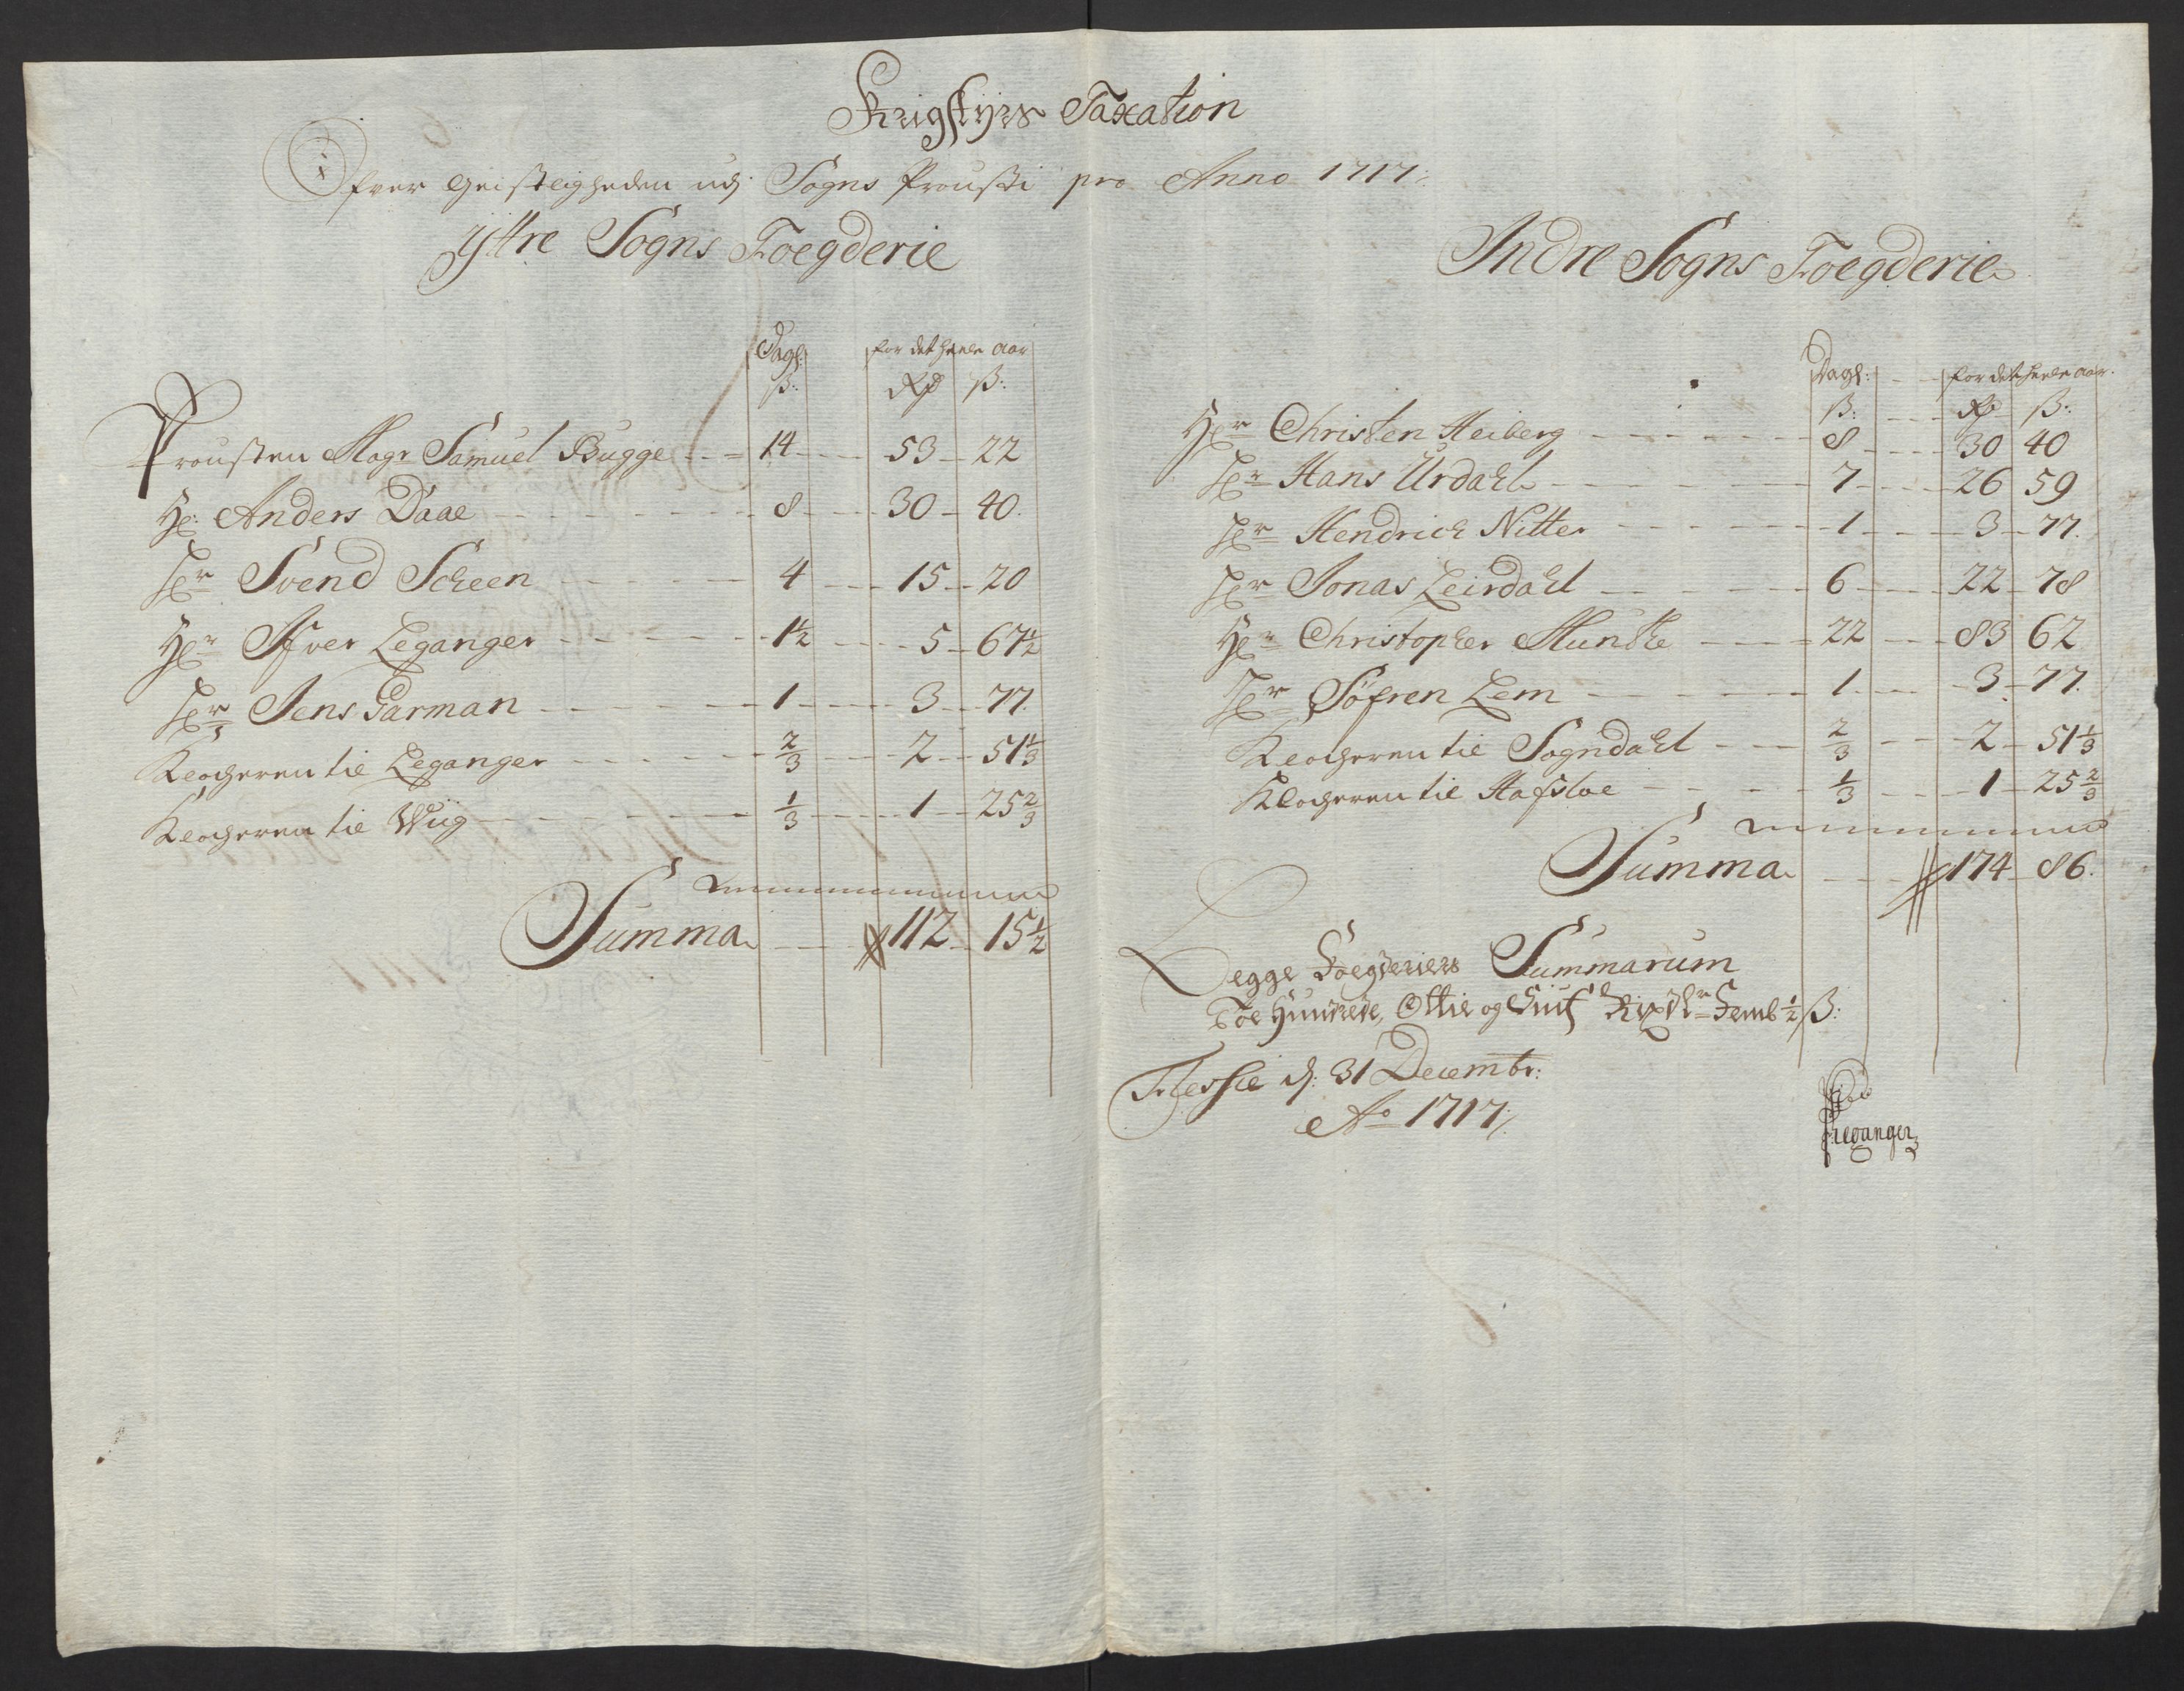 Krigstyrs Taxation
Ofver Geistligheden udj Sogns Prousti pro Anno 1717:
Yttre Sogns Foegderie
Dagl: for det heele Aar
ß: Rdr ß:
Prousten Magr Samuel Bugge 14 53 22
Hr: Anders Daae 8 30 40.
Hr Svend Scheen 4 15 20
Hr Ifver Leganger 1½ 5 67½
Hr Jens Garman 1 3 77.
Klocheren til Leganger ⅔ 2 51⅓
Klocheren til Wiig ⅓ 1 25⅔
Summa 112 15½
Indre Sogns Foegderie
Dagl: for det heele Aar.
ß: Rdr ß:
Hr Christen Heiberg 8 30 40
Hr Hans Urdahl 7 26 59
Hr Hendrich Nitter 1 3 77.
Hr Jonas Leirdahl 6 22 78
Hr Christopher Munthe 22 83 62
Hr Søfren Lem 1 3 77.
Klocheren til Sogndahl ⅔ 2 51⅓
Klocheren til Hafsloe ⅓ 1 25⅔
Summa 174 86.
Begge Foegderiers Summarum
Toe Hundrede, Ottie og Siuf Rixdlr Femb ½ ß:
Fresvie d: 31 Decembr:
Ao 1717:/